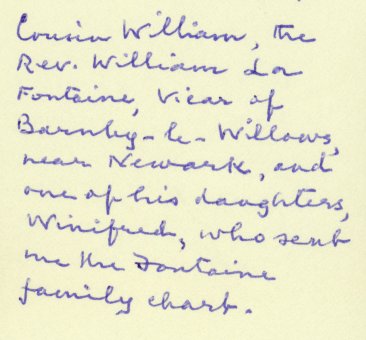 Cousin William, the
Rev. William La
Fontaine, Vicar of
Barnby-le-Willows,
near Newark, and
one of his daughters,
Winifred, who sent
me the Fontaine
family chart.